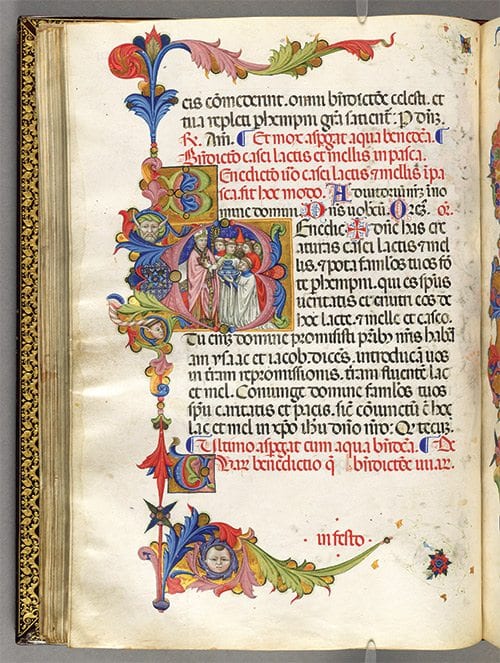 cis cōmederint. omni bn̄dictōe celesti. et
tua repleti phempm grā satient̄. P dn̄ꝫ.
℞. Am̄. Et mox aspgat aqua benetcā.
Bn̄dictō casei lactis et mellis in pasca.
Benedictō uō casei lactis & mellis ī pa
sca. fit hoc modo. Adiutoriū nr̄ꝫ ī no
mine domini. Dn̄s uobcū. Orem̄. or̄.
Benedic ✠ dn̄e has cre
aturas casei lactis & mel
lis. & pota famlos tuos fō
te phempm. qui es sp̄us
ueritatis et enutri eos de
hoc lacte. & melle et casco.
Tu eniꝫ domine promisisti pr̄iby nr̄is habā
am ysaac et iacob. dicēs. introducā uos
in t̄ram repromissionis. t̄ram fluentē lac
et mel. Coniunge domine famlos tuos
spū caritatis et pacis. sic cōiunctū ē hoc
lac et mel in xpo ihū dn̄o nr̄o: Q tecuꝫ.
Ultimo aspgat eum aqua bn̄dcā. De
uar benedictio q bn̄dictōe uuar.
· in festo ·